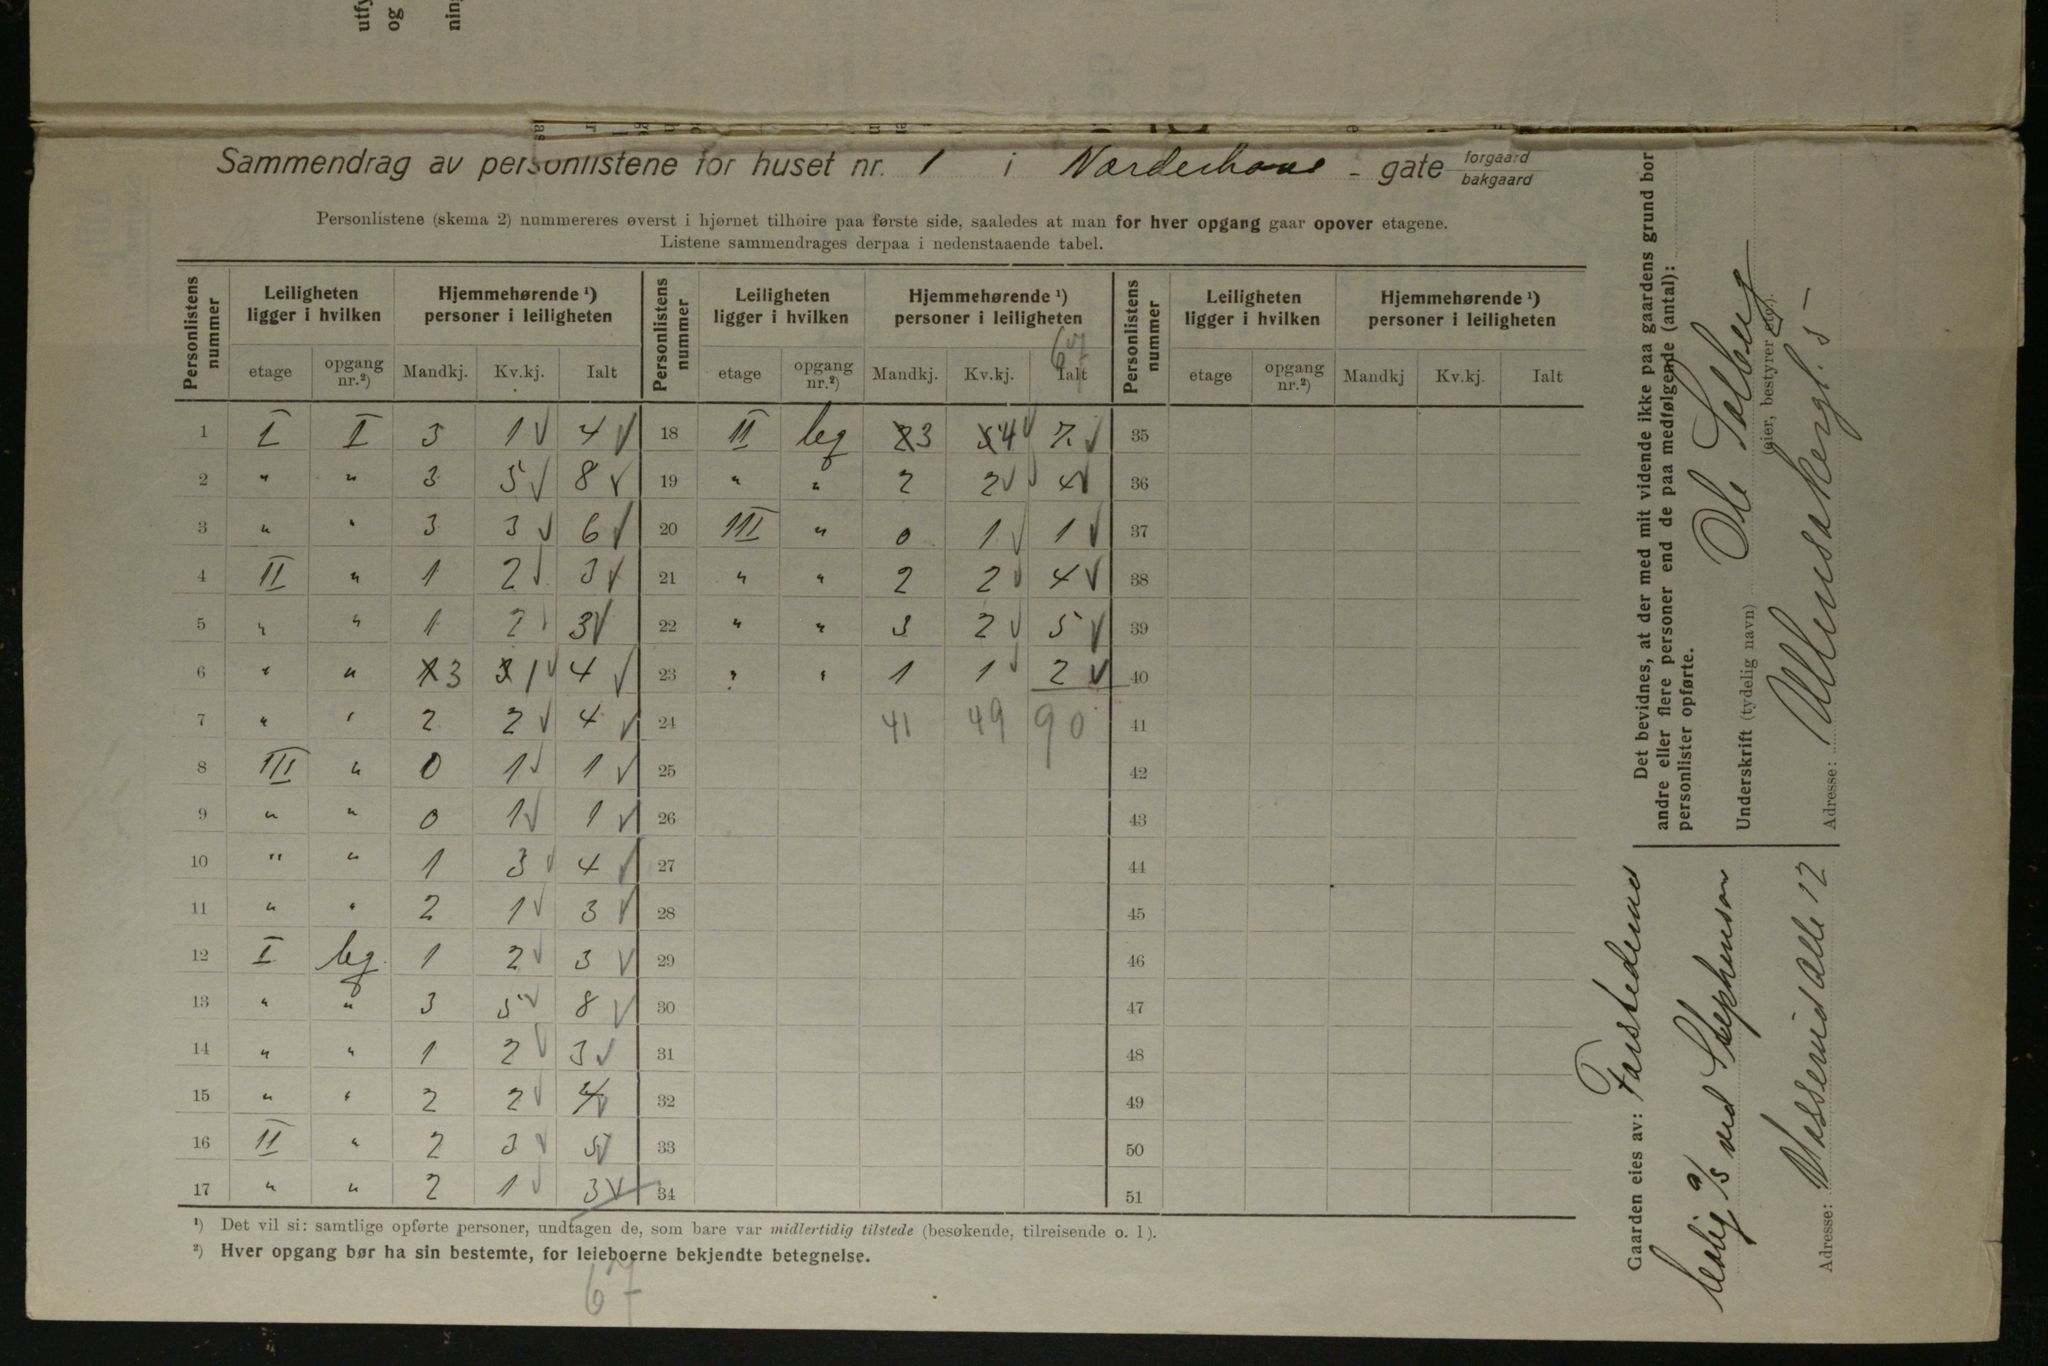 Sammendrag av personlistene for huset nr. 1 i Norderhovs - gate forgaard bakgaard
Personlistene (skema 2) nummereres øverst i hjørnet tilhøire paa første side, saaledes at man for hver opgang gaar opover etagene.
Listene sammendrages derpaa i nedenstaaende tabel.
Personlistens nummer Leiligheten ligger i hvilken Hjemmehørende ¹) personer i leiligheten Personlistens nummer Leiligheten ligger i hvilken Hjemmehørende ¹) personer i leiligheten Personlistens nummer Leiligheten ligger i hvilken Hjemmehørende ¹) personer i leiligheten
67
etage opgang nr.²) Mandkj. Kv.kj. Ialt etage opgang nr.²) Mandkj. Kv.kj. Ialt etage opgang nr.²) Mandkj Kv.kj. Ialt
1 I I 3 1 √ 4 √ 18 II bg 2 3 3 4 √ 7. √ 35
2 " " 3 5 √ 8 √ 19 " " 2 2 √ 4 √ 36
3 " " 3 3 √ 6 √ 20 III " 0 1 √ 1 √ 37
4 II " 1 2 √ 3 √ 21 " " 2 2 √ 4 √ 38
5 " " 1 2 √ 3 √ 22 " " 3 2 √ 5 √ 39
6 " " 1 3 3 1 √ 4 √ 23 " " 1 1 √ 2 √ 40
7 " " 2 2 √ 4 √ 24 41 49 90 41
8 III " 0 1 √ 1 √ 25 42
9 " " 0 1 √ 1 √ 26 43
10 " " 1 3 √ 4 √ 27 44
11 " " 2 1 √ 3 √ 28 45
12 I bg. 1 2 √ 3 √ 29 46
13 " " 3 5 √ 8 √ 30 47
14 " " 1 2 √ 3 √ 31 48
15 " " 2 2 √ 4 √ 32 49
16 II " 2 3 √ 5 √ 33 50
17 " " 2 1 √ 3 √ 34 51
¹) Det vil si: samtlige opførte personer, undtagen de, som bare var midlertidig tilstede (besøkende, tilreisende o. l).
²) Hver opgang bør ha sin bestemte, for leieboerne bekjendte betegnelse.
67
Det bevidnes, at der med mit vidende ikke paa gaardens grund bor
andre eller flere personer end de paa medfølgende (antal):
personlister opførte.
Underskrift (tydelig navn) Ole Solberg
eier, bestyrer etc).
Adresse: Ullensakergt. 5
Gaarden eies av: Forstedernes
bolig a/s ved Stephenson
Adresse: Mosserud alle 12